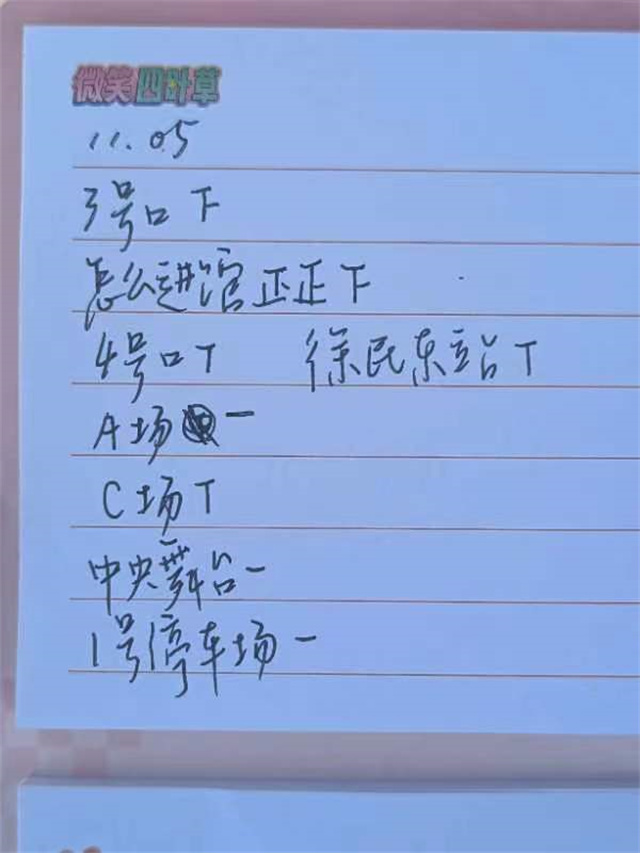 微笑四叶草
11.05
3号口 下
怎么进馆 正正下
4号口 T 徐民东站 T
A场 一
C场 T
中央舞台 一
1号停车场 一